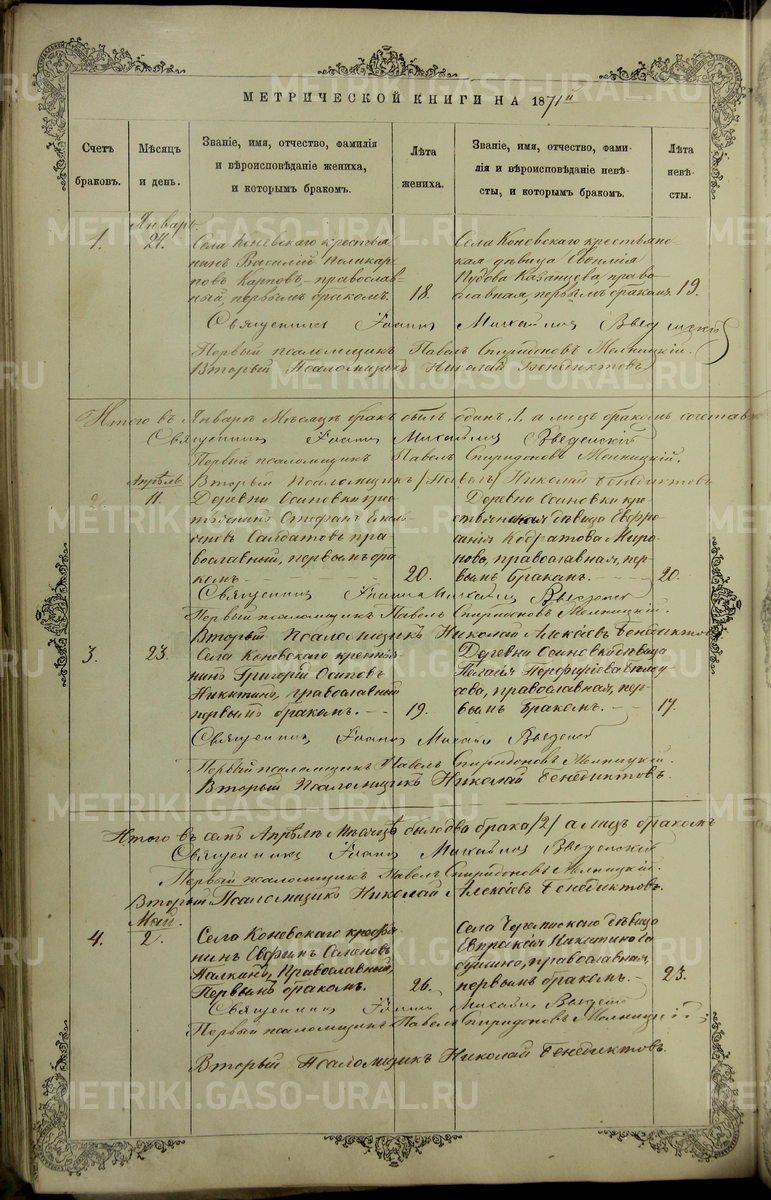 МЕТРИЧЕСКОЙ КНИГИ НА 1871й
Счетъ браковъ.
Мѣсяцъ и день.
Званіе, имя, отчество, фамилія
и вѣроисповѣданіе жениха,
и которымъ бракомъ.
Лѣта жениха.
Званіе, имя, отчество, фами-
лія и вѣроисповѣданіе невѣ-
сты, и которымъ бракомъ.
Лѣта невѣ-
сты.
Январь
1.
24.
Села Коневскаго крестья-
нинъ Василій Поликар-
повъ Карповъ, православ-
ный, первымъ бракомъ.
18.
Села Коневскаго крестьянс-
кая дѣвица
Пудова Казанцева, право-
славная, первымъ бракомъ.
19.
Священникъ Іоаннъ Михайловъ Введенскій
Первый псаломщикъ Павелъ Спиридоновъ Мелницкій.
Второй Псаломщикъ Николай Бенедиктовъ
Итого въ Январѣ Мѣсяцѣ бракъ былъ одинъ /1/, а лицъ бракомъ сочетав
Священникъ Іоаннъ Михайловъ Введенскій
Первый псаломщикъ Павелъ Спиридоновъ Мелницкій.
Второй Псаломщикъ Николай Бенедиктовъ
Апрѣль
2.
11.
Деревни Осиновки крес-
тьянинъ Стефанъ
Салдатовъ пра-
вославный, первымъ бра-
комъ
20.
Деревни Осиновки кре-
стьянская дѣвица Евфро-
синія Миро-
нова, православная, пер-
вымъ бракомъ.
20.
Священникъ Іоаннъ Михайловъ Введенскій
Первый псаломщикъ Павелъ Спиридоновъ Мелницкій.
Второй Псаломщикъ Николай Алексѣевъ Бенедиктовъ
3.
23.
Села Коневскаго крестья-
нинъ Григорій Осиповъ
Никитинъ, православный
первымъ бракомъ.
19.
Деревни Осиновки дѣвица
Пелагія
православная, пер-
вымъ бракомъ.
17.
Священникъ Іоаннъ Михайловъ Введенскій
Первый псаломщикъ Павелъ Спиридоновъ Мелницкій.
Второй Псаломщикъ Николай Бенедиктовъ.
Итого въ семъ Апрѣлѣ Мѣсяцѣ было два брака /2/ а лицъ бракомъ
Священникъ Іоаннъ Михайловъ Введенскій
Первый псаломщикъ Павелъ Спиридоновъ Мелницкій.
Второй Псаломщикъ Николай Алексѣевъ Бенедиктовъ.
Май
4.
2.
Села Коневскаго
Семеновъ
Налкинъ, Православный,
Первымъ бракомъ.
26.
Села дѣвица
Евпраксія Никитина
православная,
первымъ бракомъ.
23.
Священникъ Іоаннъ Михайловъ Введенскій
Первый псаломщикъ Павелъ Спиридоновъ Мелницкій
Второй Псаломщикъ Николай Бенедиктовъ.
METRIKI.GASO-URAL.RU